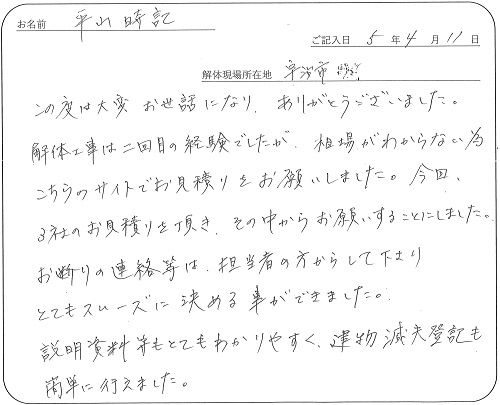 お名前 平山 時記
ご記入日 5年4月11日
解体現場所在地 宇治市
この度は大変 お世話になり、ありがとうございました。
解体工事は二回目の経験でしたが、相場がわからない為
こちらのサイトでお見積りをお願いしました。今回、
3社のお見積りを頂き、その中からお願いすることにしました。
お断りの連絡等は、担当者の方からして下さり
とてもスムーズに決める事ができました。
説明資料等もとてもわかりやすく、建物滅失登記も
簡単に行えました。